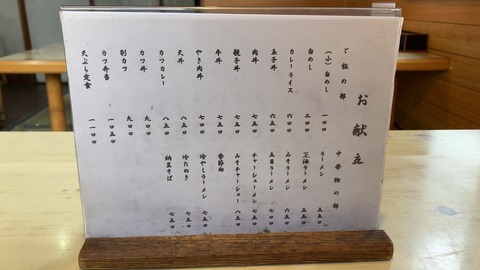 お献立
ご飯の部
(小)白めし 一〇〇
白めし 二〇〇
カレーライス 五〇〇
玉子丼 六五〇
肉丼 七五〇
親子丼 七五〇
牛丼 七〇〇
やき肉丼 七〇〇
天丼 八五〇
カツカレー 八五〇
カツ丼 九〇〇
別カツ 九〇〇
カツ弁当 一〇五〇
天ぷら定食 一一〇〇
中華物の部
ラーメン 五五〇
正油ラーメン 五五〇
みそラーメン 六五〇
五目ラーメン 七五〇
チャーシューメン 七五〇
みそチャーシュー 八五〇
季節物
冷やしラーメン 七五〇
冷たぬき 七五〇
納豆そば 七五〇